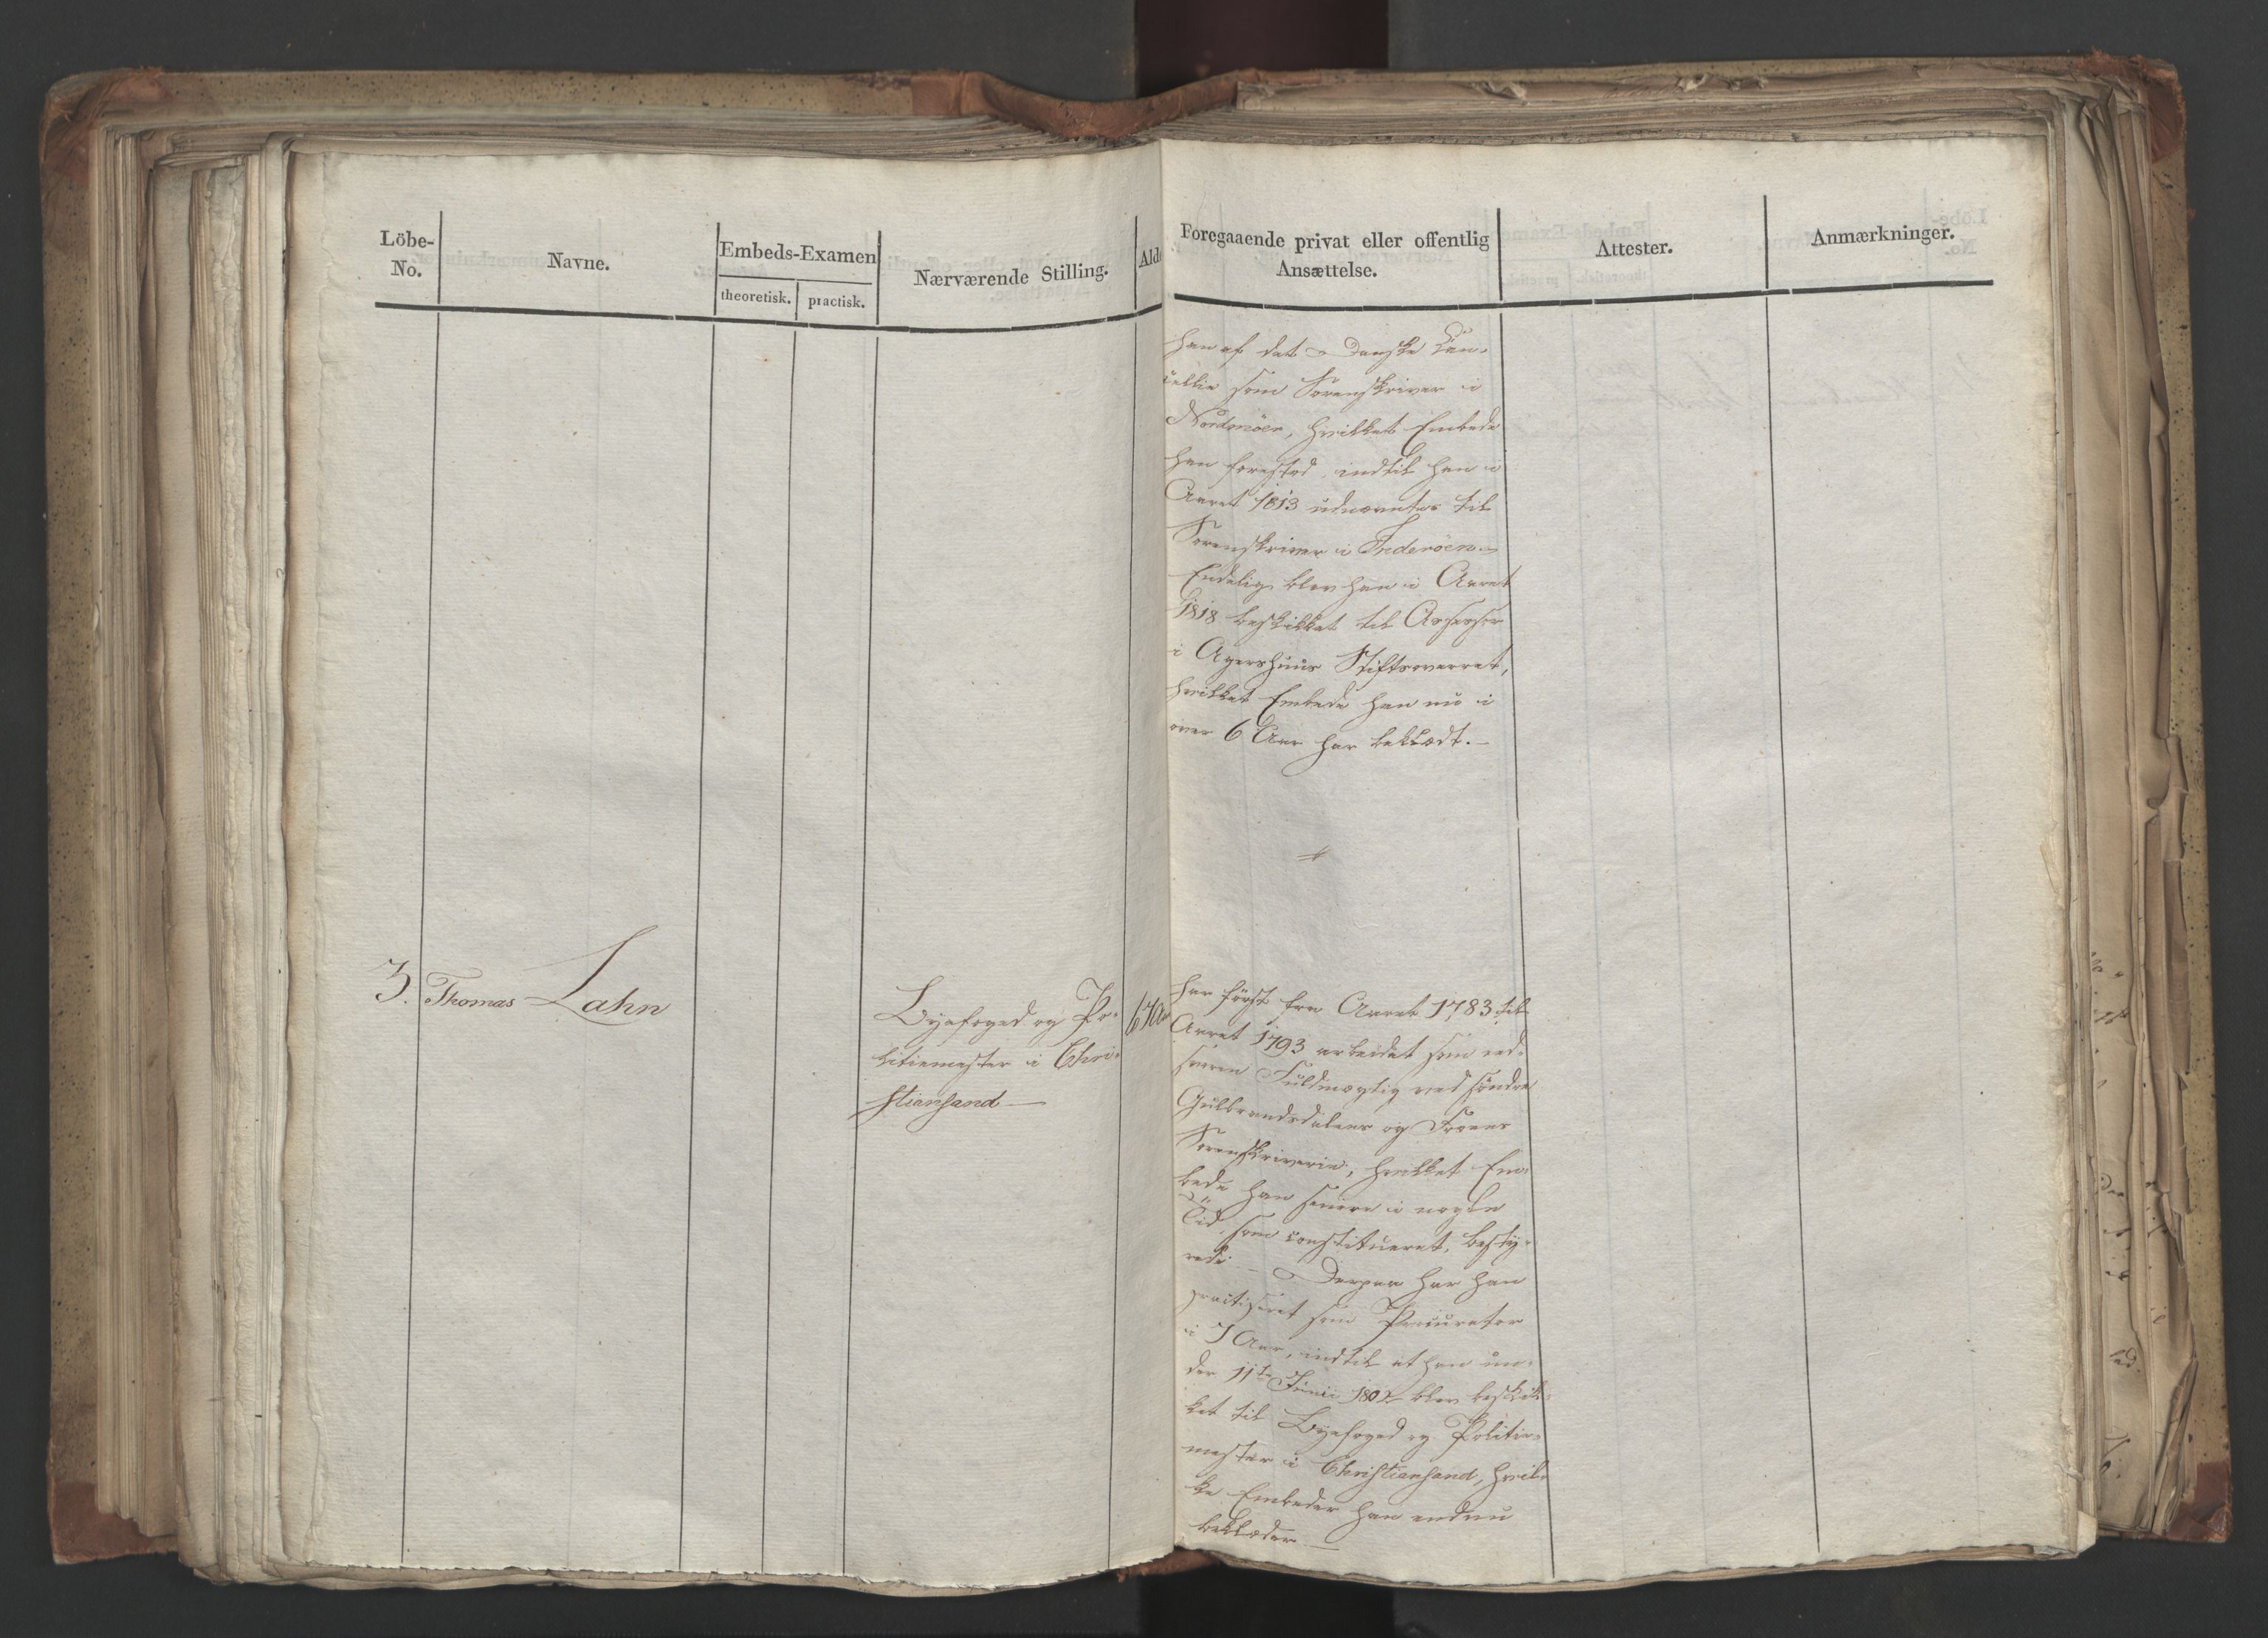 Löbe-
No.
Navne.
Embeds-Examen
theoretisk. practisk.
Nærværende Stilling.
Ald
Foregaaende privat eller offentlig
Ansættelse.
Attester.
Anmærkninger.
han af det Danske Can-
cellie som Sorenskriver i
Nordmöer, hvilket Embede
han forestod indtil han i
Aaret 1813 udnævntes til
Sorenskriver i Inderöen
Endelig blev han i Aaret
1818 beskikket til Assessor
i Agershuus Stiftsoverret,
hvilket Embede han nu i
over 6 Aar har beklædt.—
3. Thomas Lahn
Byefoged og Po-
litiemester i Chri-
stiansand —
har först fra Aaret 1783 til
Aaret 1793 arbeidet som ed-
svoren Fuldmægtig ved söndre
Gulbrandsdalens og Froens
Sorenskriverie, hvilket Em-
bede han senere i nogen
Tid, som constitueret, besty-
rede. — Derpaa har han
practiseret som Procurator
i 7 Aar, indtil at han un-
der 11te Junii 1802 blev beskik-
ket til Byefoged og Politie-
mester i Christiansand, hvil-
ke Embeder han endnu
beklæder —